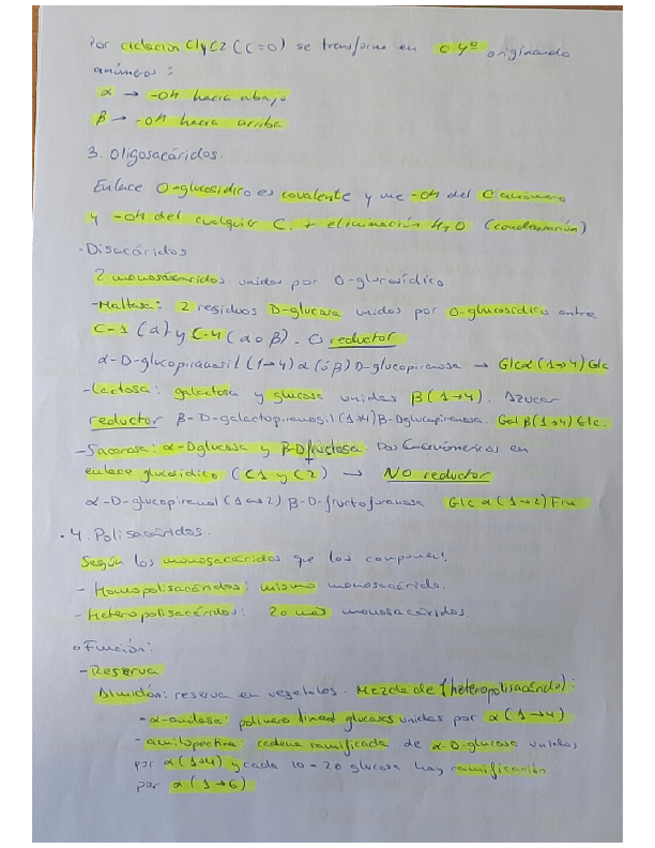 Por ciclación C1 y C2 (C=O) se transforma en C 4º originando
anómeros:
α → -OH hacia abajo
β → -OH hacia arriba
3. Oligosacáridos.
Enlace O-glucosídico es covalente y une -OH del C anómero
y -OH del cualquier C. + eliminación H2O (condensación)
- Disacáridos
2 monosacáridos unidos por O-glucosídico
- Maltosa: 2 residuos D-glucosa unidos por O-glucosídico entre
C-1 (α) y C-4 (α o β). Es reductor
α-D-glucopiranosil (1→4) α (ó β) D-glucopiranosa → Glc α (1→4) Glc
- Lactosa: galactosa y glucosa unidas β (1→4). Azucar
reductor β-D-galactopiranosil (1→4) β-D-glucopiranosa. Gal β (1→4) Glc.
- Sacarosa: α-D glucosa y β-D fructosa. Dos C anómericos en
enlace glucosídico (C1 y C2) → NO reductor
α-D-glucopiranosil (1↔2) β-D-fructofuranosa Glc α (1→2) Fru
· 4. Polisacáridos.
Según los monosacáridos que los componen:
- Homopolisacáridos: mismo monosacárido.
- Heteropolisacáridos: 2 o más monosacáridos.
o Función:
- Reserva
Almidón: reserva en vegetales. Mezcla de (heteropolisacárido):
- α-amilosa: polímero lineal glucosas unidas por α (1→4)
- amilopectina: cadena ramificada de α-D-glucosa unidas
por α (1→4) y cada 10-20 glucosa hay ramificación
por α (1→6)